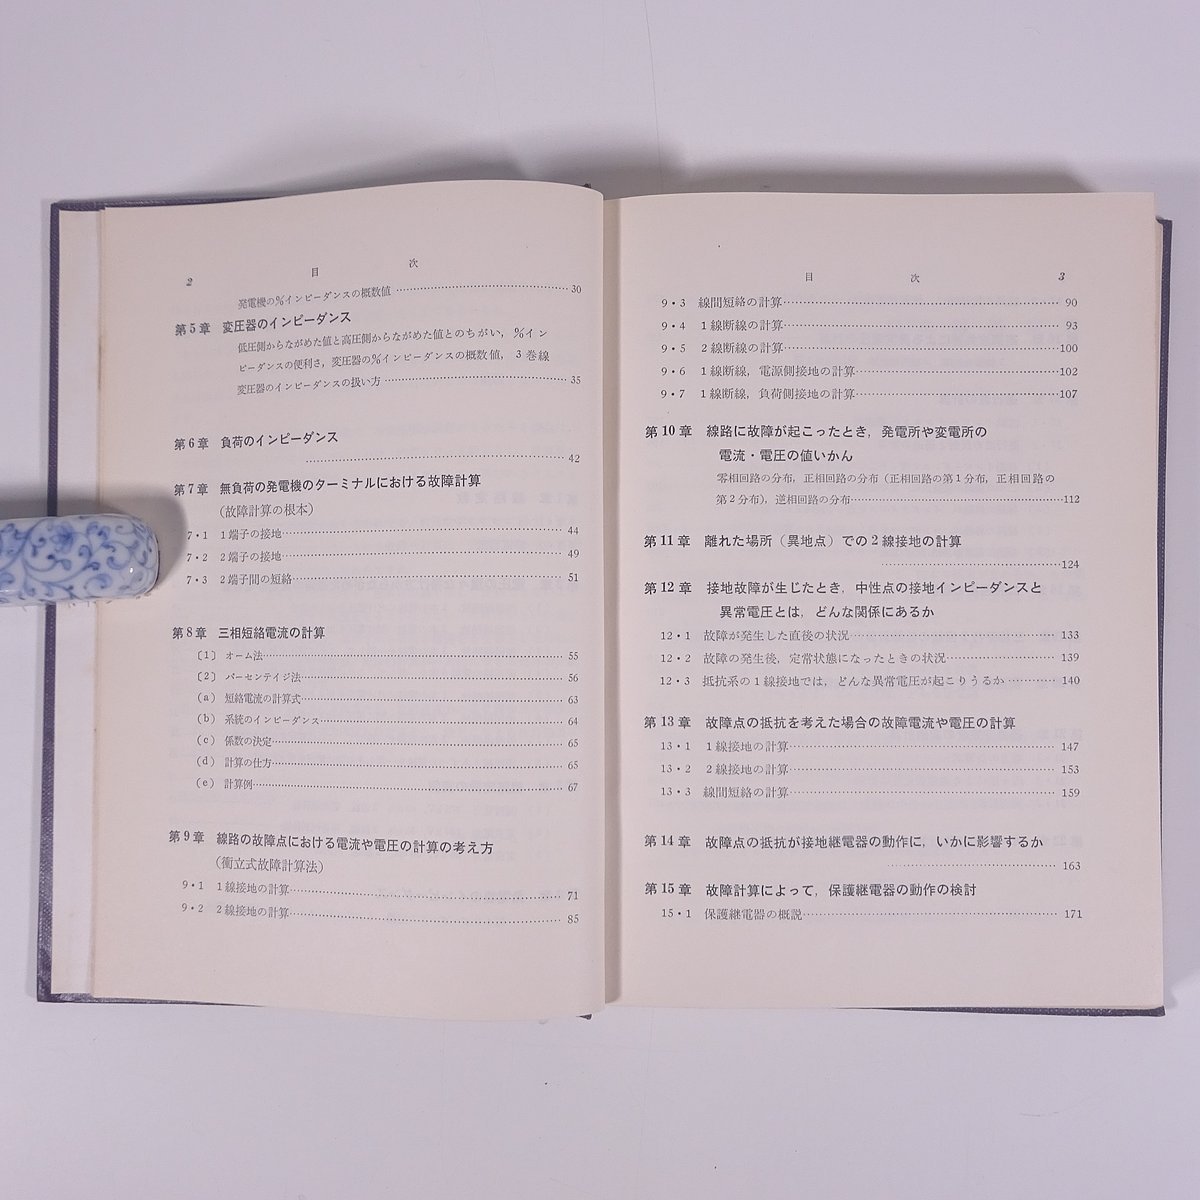 2 目 次
発電機の%インピーダンスの概数値 30
第5章 変圧器のインピーダンス
低圧側からながめた値と高圧側からながめた値とのちがい，%イン
ピーダンスの便利さ，変圧器の%インピーダンスの概数値，3巻線
変圧器のインピーダンスの扱い方 35
第6章 負荷のインピーダンス
42
第7章 無負荷の発電機のターミナルにおける故障計算
（故障計算の根本）
7・1 1端子の接地 44
7・2 2端子の接地 49
7・3 2端子間の短絡 51
第8章 三相短絡電流の計算
〔1〕 オーム法 55
〔2〕 パーセンテイジ法 56
(a) 短絡電流の計算式 63
(b) 系統のインピーダンス 64
(c) 係数の決定 65
(d) 計算の仕方 65
(e) 計算例 67
第9章 線路の故障点における電流や電圧の計算の考え方
（衝立式故障計算法）
9・1 1線接地の計算 71
9・2 2線接地の計算 85
目 次 3
9・3 線間短絡の計算 90
9・4 1線断線の計算 93
9・5 2線断線の計算 100
9・6 1線断線，電源側接地の計算 102
9・7 1線断線，負荷側接地の計算 107
第10章 線路に故障が起こったとき，発電所や変電所の
電流・電圧の値いかん
零相回路の分布，正相回路の分布（正相回路の第1分布，正相回路の
第2分布），逆相回路の分布 112
第11章 離れた場所（異地点）での2線接地の計算
124
第12章 接地故障が生じたとき，中性点の接地インピーダンスと
異常電圧とは，どんな関係にあるか
12・1 故障が発生した直後の状況 133
12・2 故障の発生後，定常状態になったときの状況 139
12・3 抵抗系の1線接地では，どんな異常電圧が起こりうるか 140
第13章 故障点の抵抗を考えた場合の故障電流や電圧の計算
13・1 1線接地の計算 147
13・2 2線接地の計算 153
13・3 線間短絡の計算 159
第14章 故障点の抵抗が接地継電器の動作に，いかに影響するか
163
第15章 故障計算によって，保護継電器の動作の検討
15・1 保護継電器の概説 171